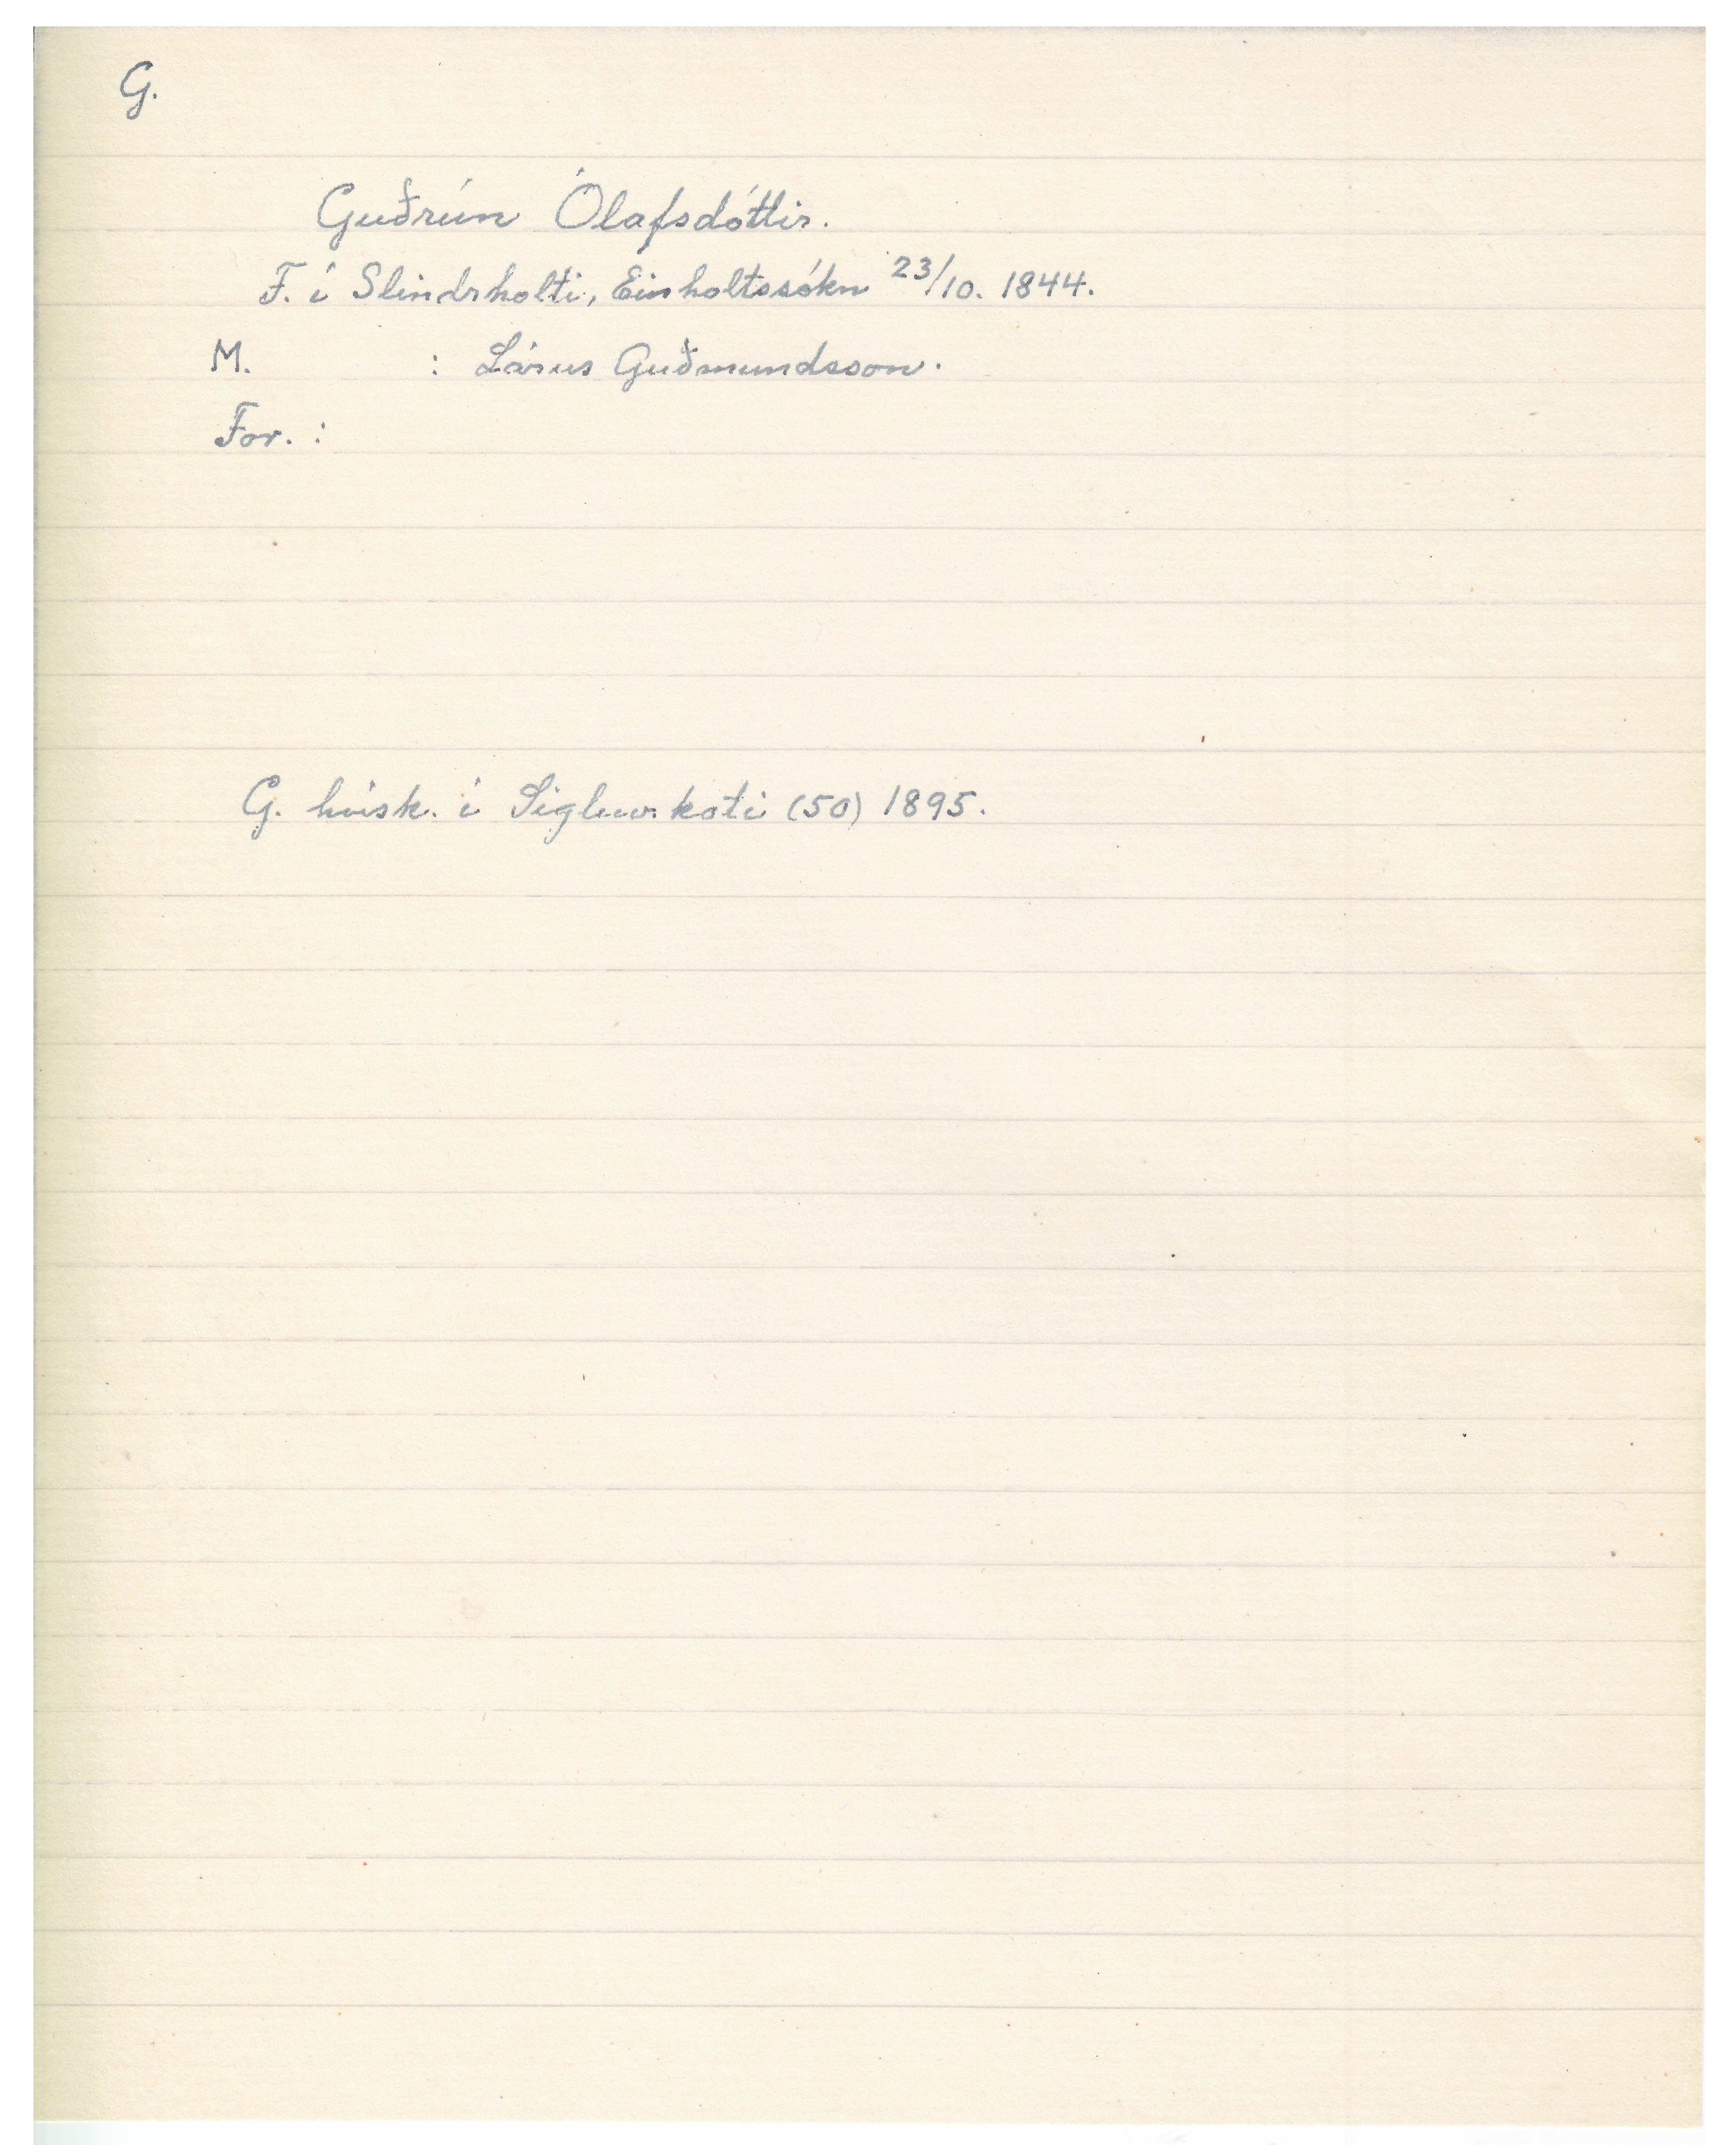 G.
Guðrún Ólafsdóttir.
F. í Slindrholti, Einholtssókn 23/10. 1844.
M. : Lárus Guðmundsson.
For. :
G. húsk. í Sigluv.koti (50) 1895.